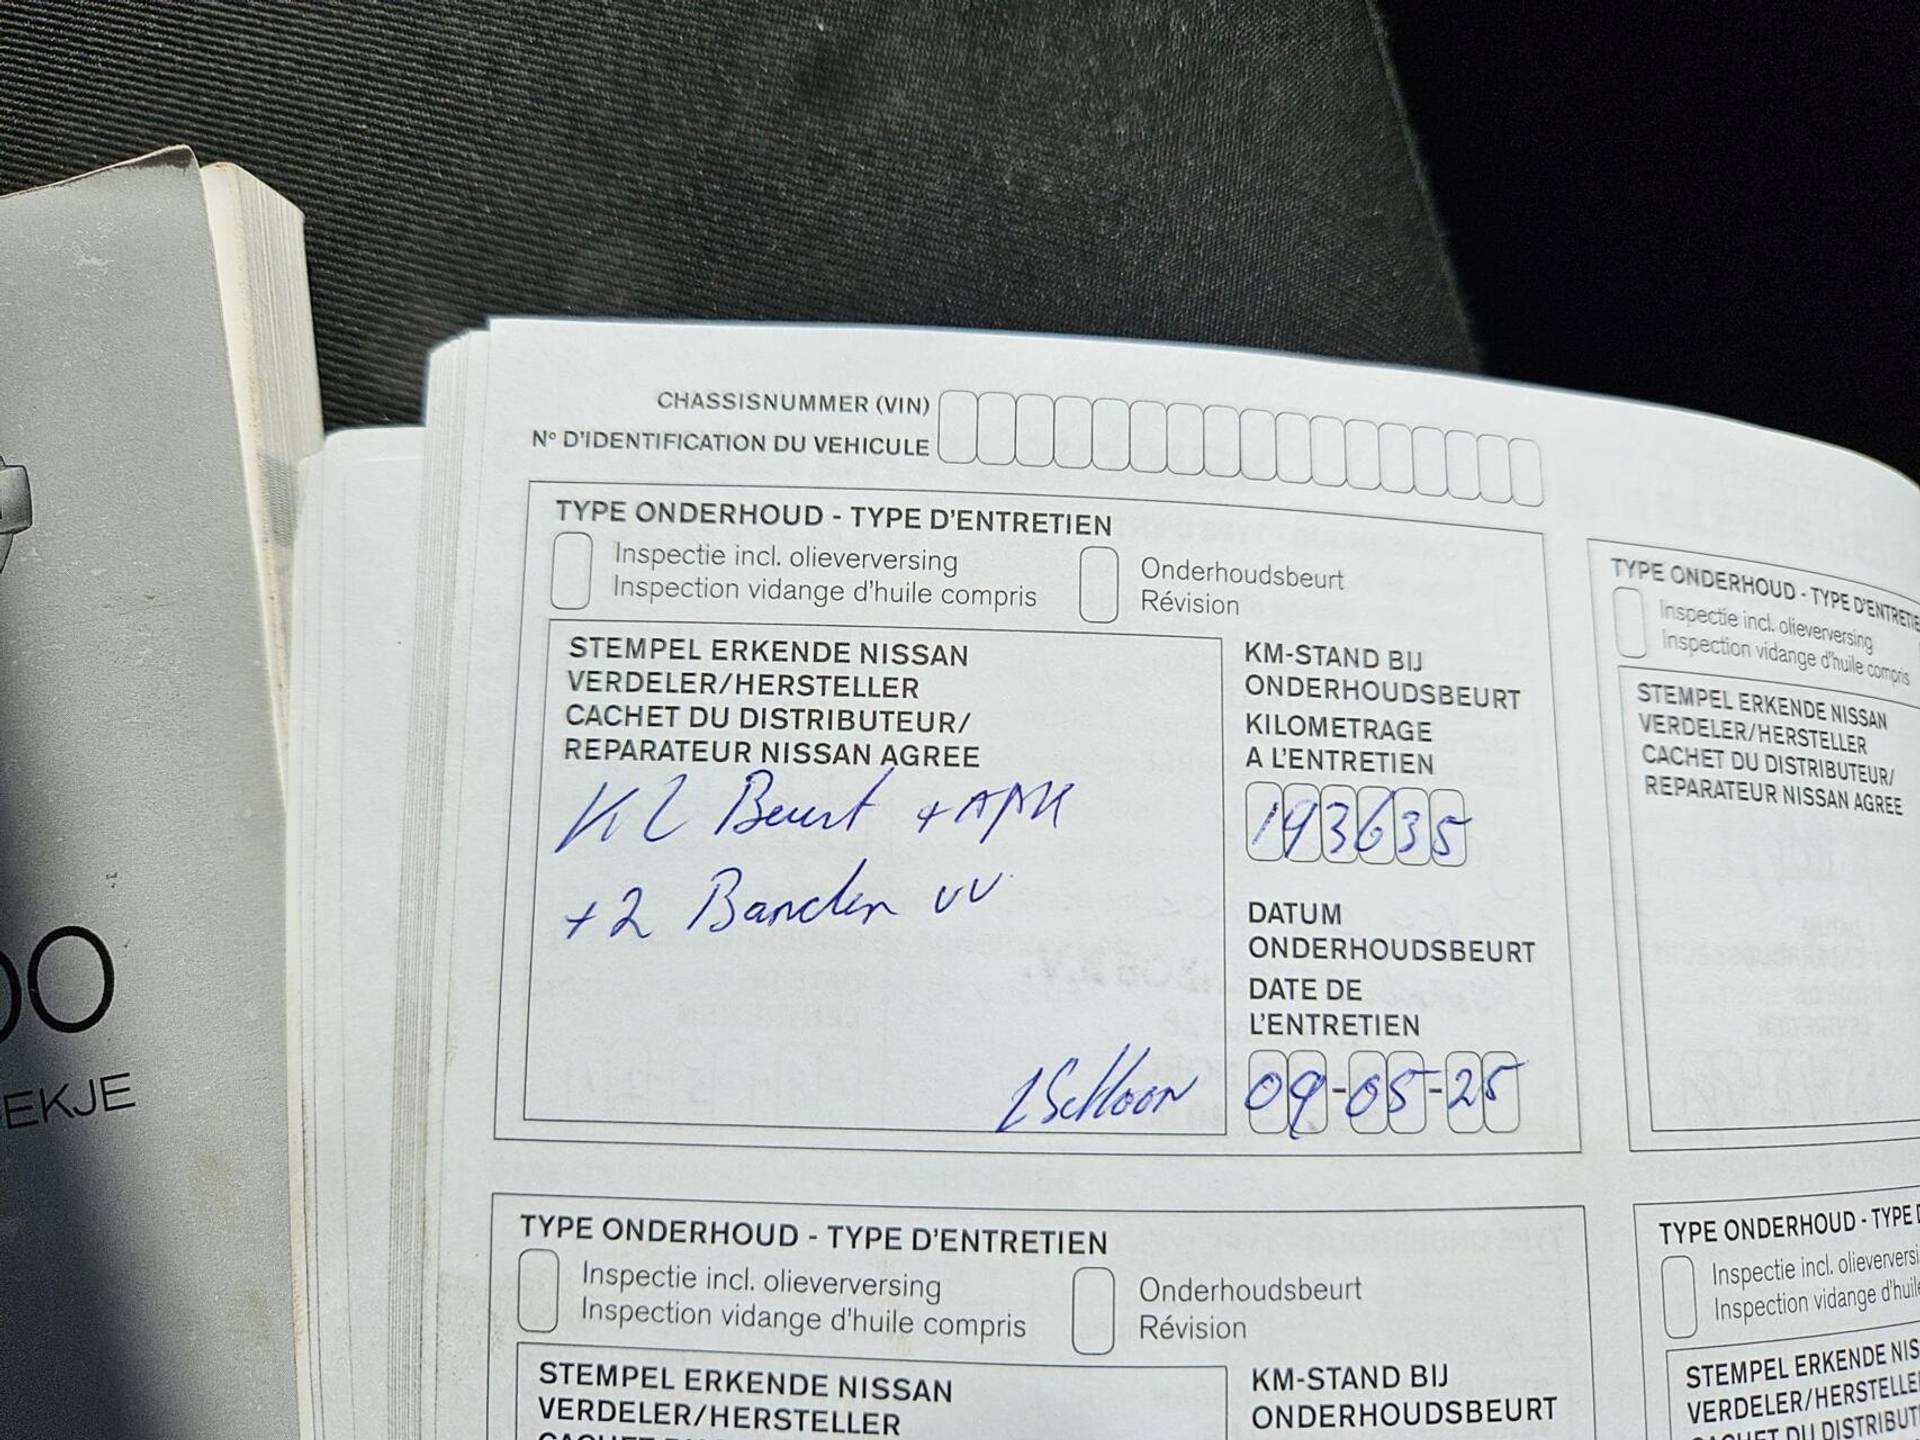 00
EKJE
CHASSISNUMMER (VIN)
Nº D'IDENTIFICATION DU VEHICULE
TYPE ONDERHOUD - TYPE D'ENTRETIEN
Inspectie incl. olieverversing
Inspection vidange d'huile compris
Onderhoudsbeurt
Révision
STEMPEL ERKENDE NISSAN
VERDELER/HERSTELLER
CACHET DU DISTRIBUTEUR/
REPARATEUR NISSAN AGREE
Kl Beurt + APK
+2 Banden vv
KM-STAND BIJ
ONDERHOUDSBEURT
KILOMETRAGE
A L'ENTRETIEN
193635
DATUM
ONDERHOUDSBEURT
DATE DE
L'ENTRETIEN
09-05-25
TYPE ONDERHOUD - TYPE D'ENTRETIE
Inspectie incl. olieverversing
Inspection vidange d'huile compris
STEMPEL ERKENDE NISSAN
VERDELER/HERSTELLER
CACHET DU DISTRIBUTEUR/
REPARATEUR NISSAN AGREE
TYPE ONDERHOUD - TYPE D'ENTRETIEN
Inspectie incl. olieverversing
Inspection vidange d'huile compris
Onderhoudsbeurt
Révision
STEMPEL ERKENDE NISSAN
VERDELER/HERSTELLER
KM-STAND BIJ
ONDERHOUDSBEURT
TYPE ONDERHOUD - TYPE D
Inspectie incl. olieversi
Inspection vidange d'huile
STEMPEL ERKENDE NIS
VERDELER/HERSTELLE
CACHET DU DISTRIBUT